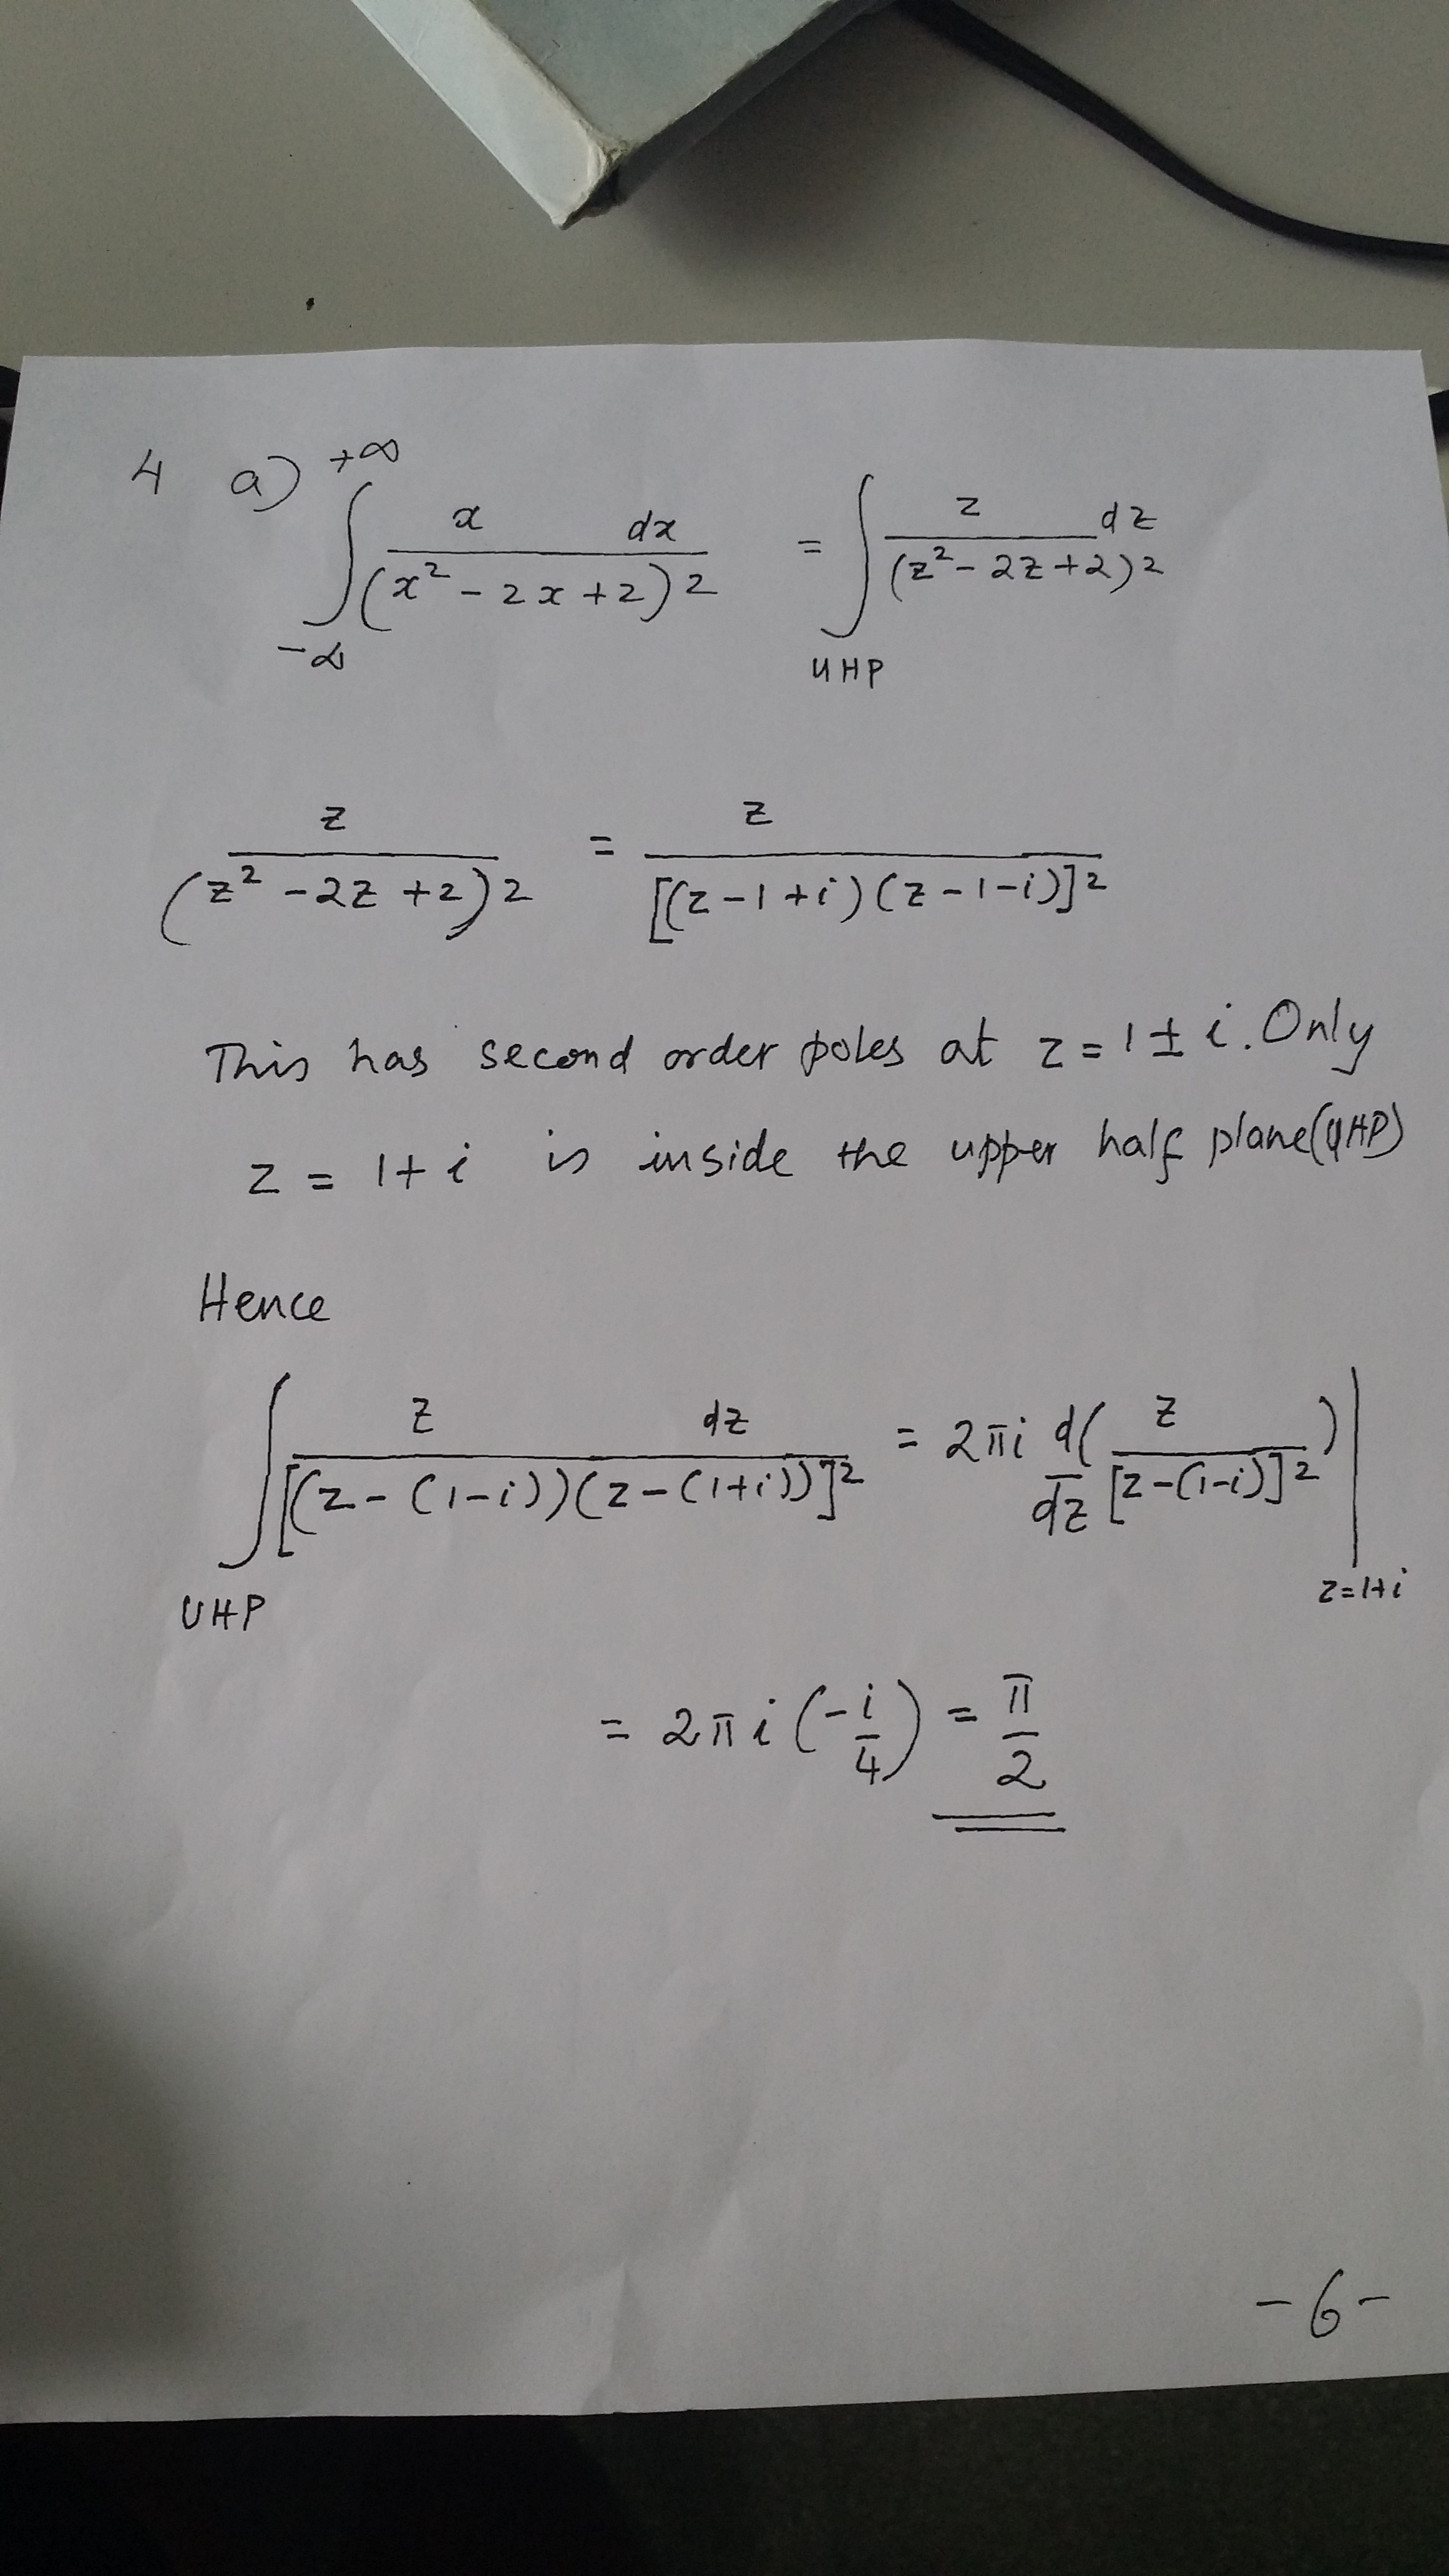 4 a) ∫_{-∞}^{+∞} x dx / (x² - 2x + 2)² = ∫_{UHP} z dz / (z² - 2z + 2)²
z / (z² - 2z + 2)² = z / [(z - 1 + i)(z - 1 - i)]²
This has second order poles at z = 1 ± i. Only
z = 1 + i is inside the upper half plane (UHP)
Hence
∫_{UHP} z dz / [(z - (1-i))(z - (1+i))]² = 2πi d/dz (z / [z-(1-i)]²) |_{z=1+i}
= 2πi (-i/4) = π/2
-6-